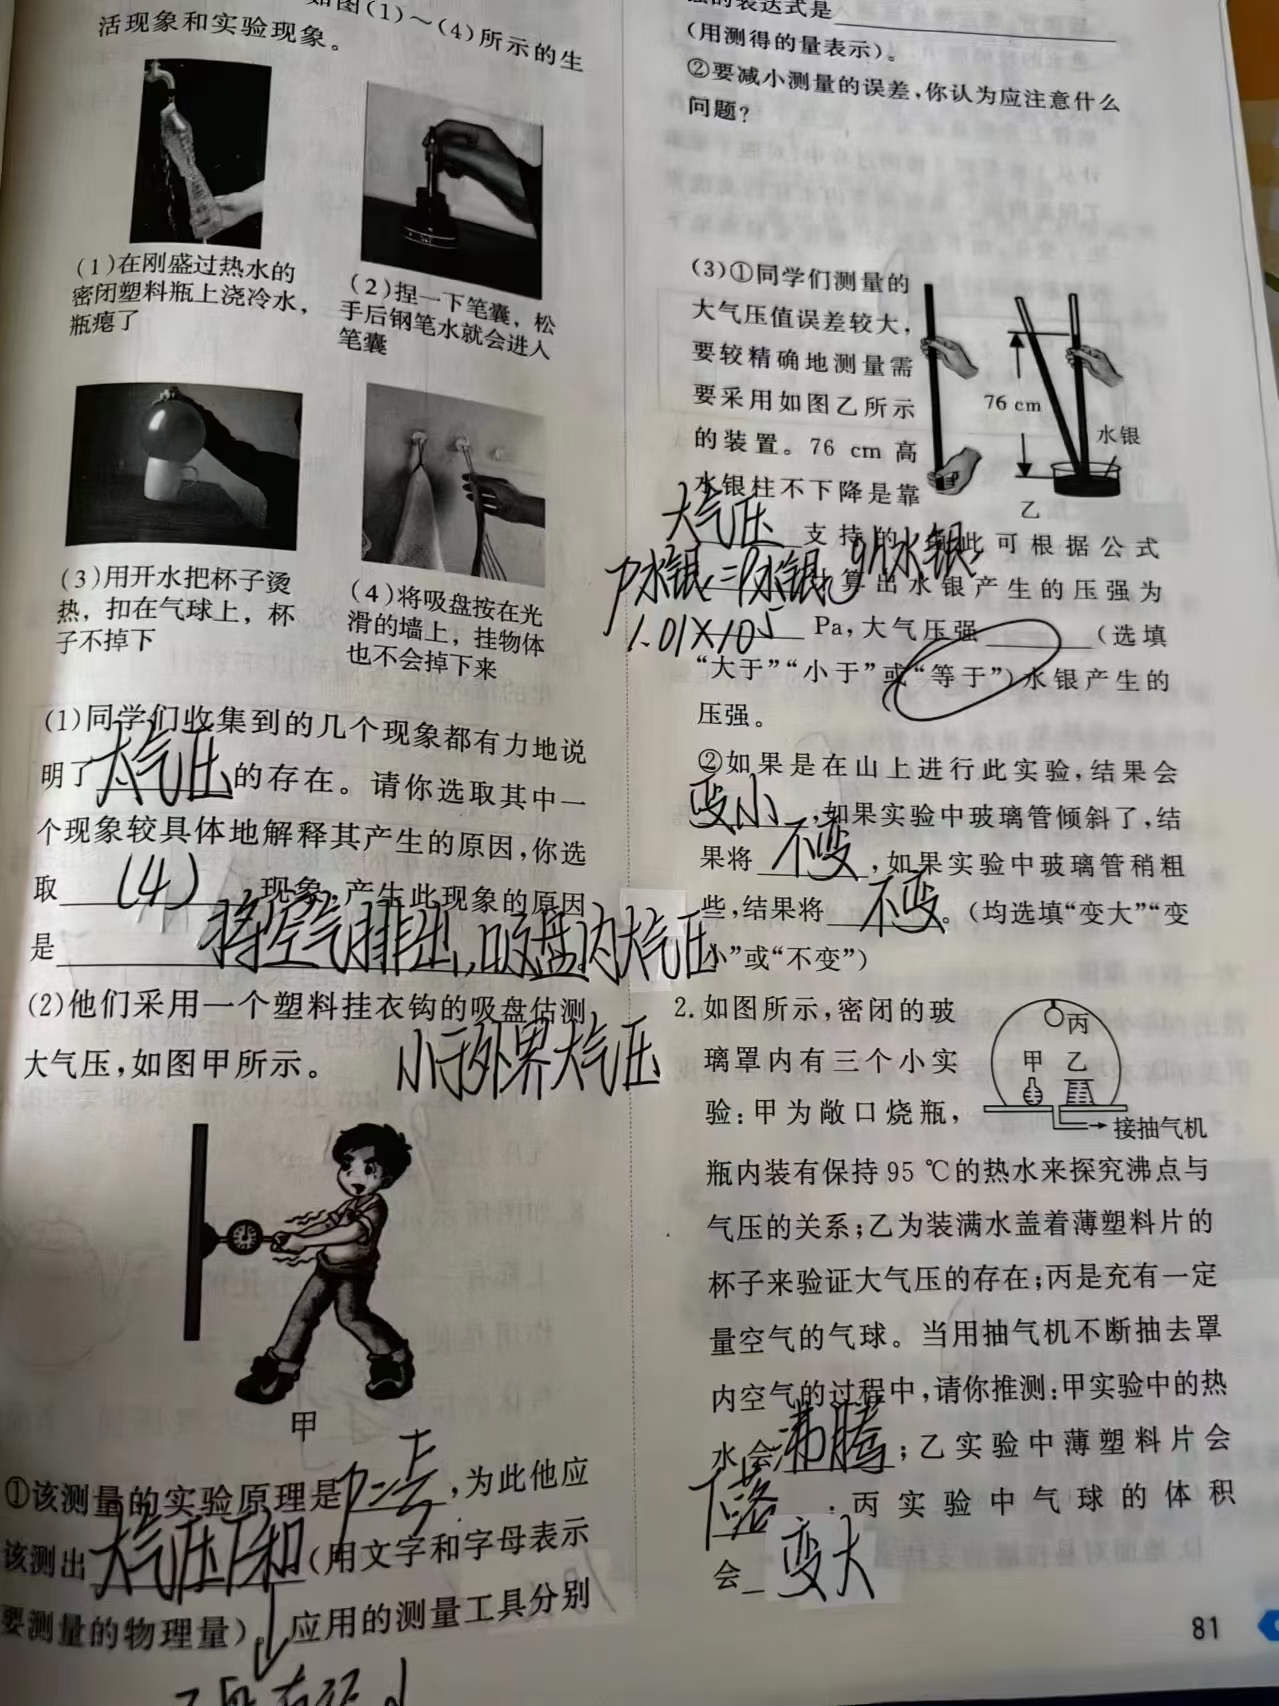 如图(1)～(4)所示的生
活现象和实验现象。
(1)在刚盛过热水的
密闭塑料瓶上浇冷水，
瓶瘪了
(2)捏一下笔囊，松
手后钢笔水就会进入
笔囊
(3)用开水把杯子烫
热，扣在气球上，杯
子不掉下
(4)将吸盘按在光
滑的墙上，挂物体
也不会掉下来
(1)同学们收集到的几个现象都有力地说
明了大气压的存在。请你选取其中一
个现象较具体地解释其产生的原因，你选
取(4)现象，产生此现象的原因
是将空气排出，吸盘内大气压
小于外界大气压
(2)他们采用一个塑料挂衣钩的吸盘估测
大气压，如图甲所示。
甲
①该测量的实验原理是p=F/S，为此他应
该测出大气压F和(用文字和字母表示
要测量的物理量)，应用的测量工具分别
的表达式是
(用测得的量表示)。
②要减小测量的误差，你认为应注意什么
问题？
(3)①同学们测量的
大气压值误差较大，
要较精确地测量需
要采用如图乙所示
的装置。76 cm高
水银柱不下降是靠
大气压支持的，此可根据公式
P水银=ρ水银gh水银算出水银产生的压强为
1.01×10⁵ Pa，大气压强(选填
“大于”“小于”或“等于”)水银产生的
压强。
76 cm
水银
乙
②如果是在山上进行此实验，结果会
变小，如果实验中玻璃管倾斜了，结
果将不变，如果实验中玻璃管稍粗
些，结果将不变。(均选填“变大”“变
小”或“不变”)
2.如图所示，密闭的玻
璃罩内有三个小实
验：甲为敞口烧瓶，
瓶内装有保持95 ℃的热水来探究沸点与
气压的关系；乙为装满水盖着薄塑料片的
杯子来验证大气压的存在；丙是充有一定
量空气的气球。当用抽气机不断抽去罩
内空气的过程中，请你推测：甲实验中的热
水会沸腾；乙实验中薄塑料片会
下落，丙实验中气球的体积
会变大
丙
甲 乙
接抽气机
81